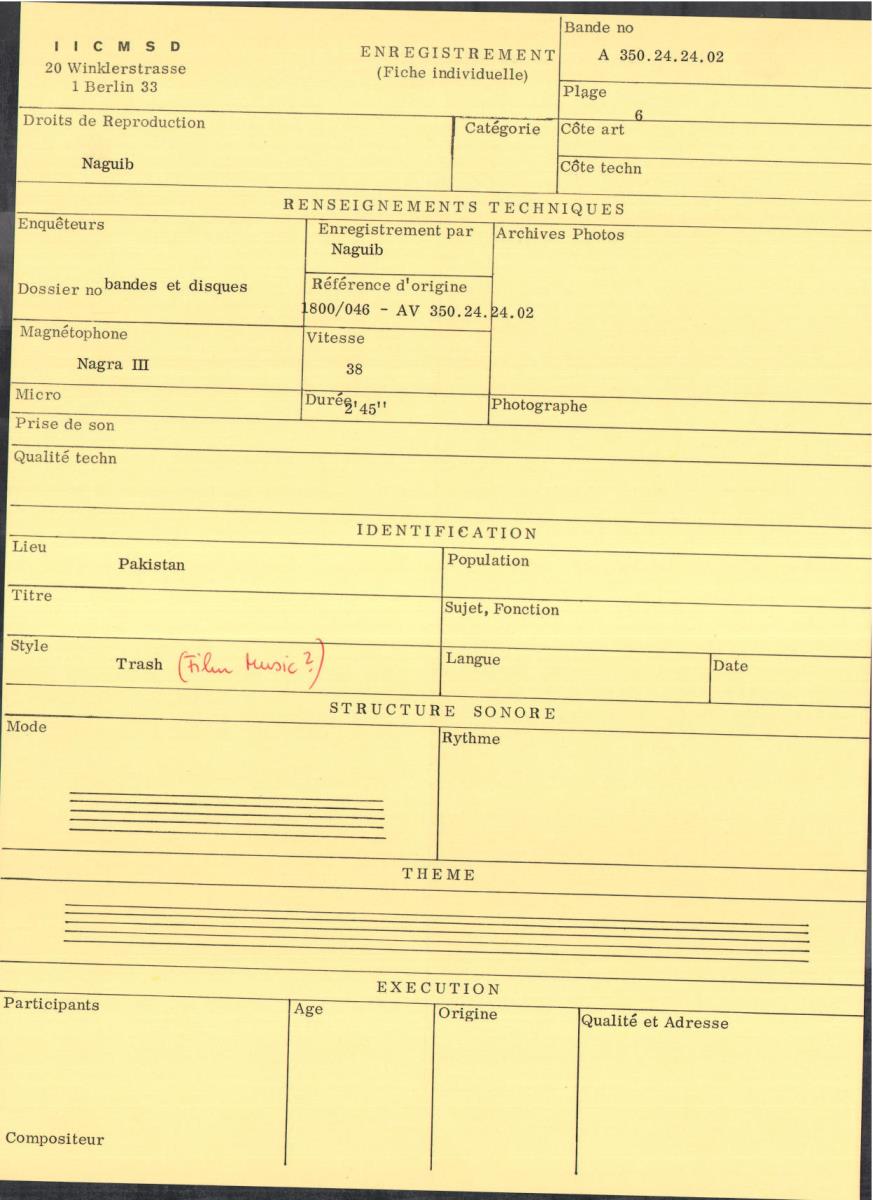 I I C M S D
20 Winklerstrasse
1 Berlin 33
ENREGISTREMENT
(Fiche individuelle)
Bande no
A 350.24.24.02
Plage
6
Droits de Reproduction
Naguib
Catégorie
Côte art
Côte techn
RENSEIGNEMENTS TECHNIQUES
Enquêteurs
Enregistrement par
Naguib
Archives Photos
Dossier no bandes et disques
Référence d'origine
1800/046 - AV 350.24.24.02
Magnétophone
Nagra III
Vitesse
38
Micro
Durée
2'45''
Photographe
Prise de son
Qualité techn
IDENTIFICATION
Lieu
Pakistan
Population
Titre
Sujet, Fonction
Style
Trash (Film Music?)
Langue
Date
STRUCTURE SONORE
Mode
Rythme
THEME
EXECUTION
Participants
Age
Origine
Qualité et Adresse
Compositeur